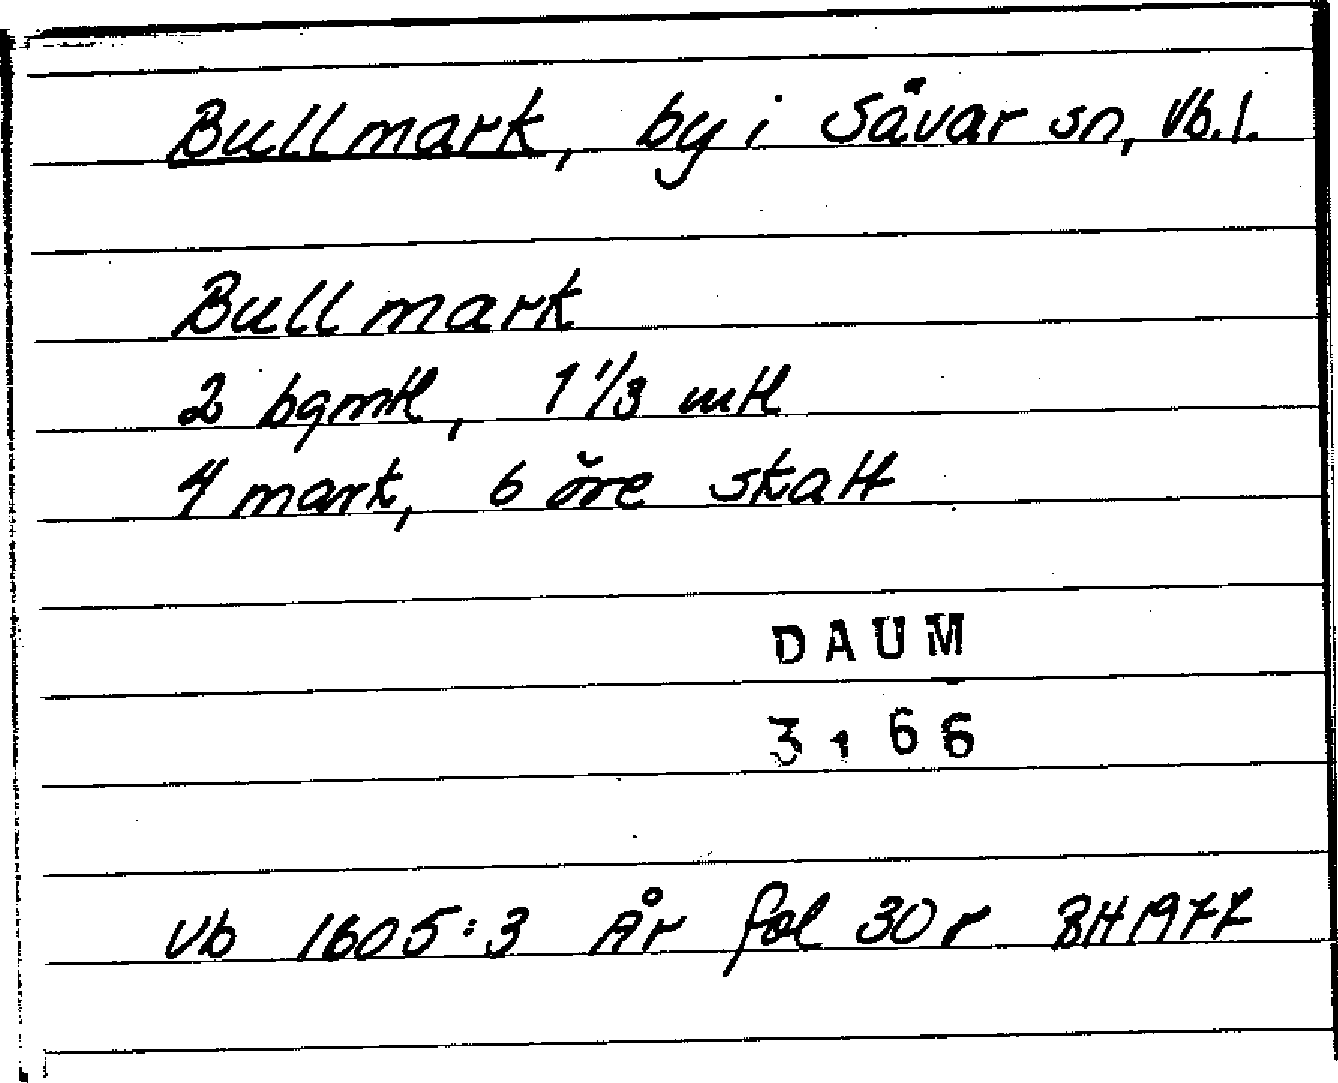 Bullmark, by i Sävar sn, Vb.l.
Bullmark
2 bgmtl, 1 1/3 mtl
4 mark, 6 öre skatt
DAUM
3166
Vb 1605:3 År fol 30 r BH 1977